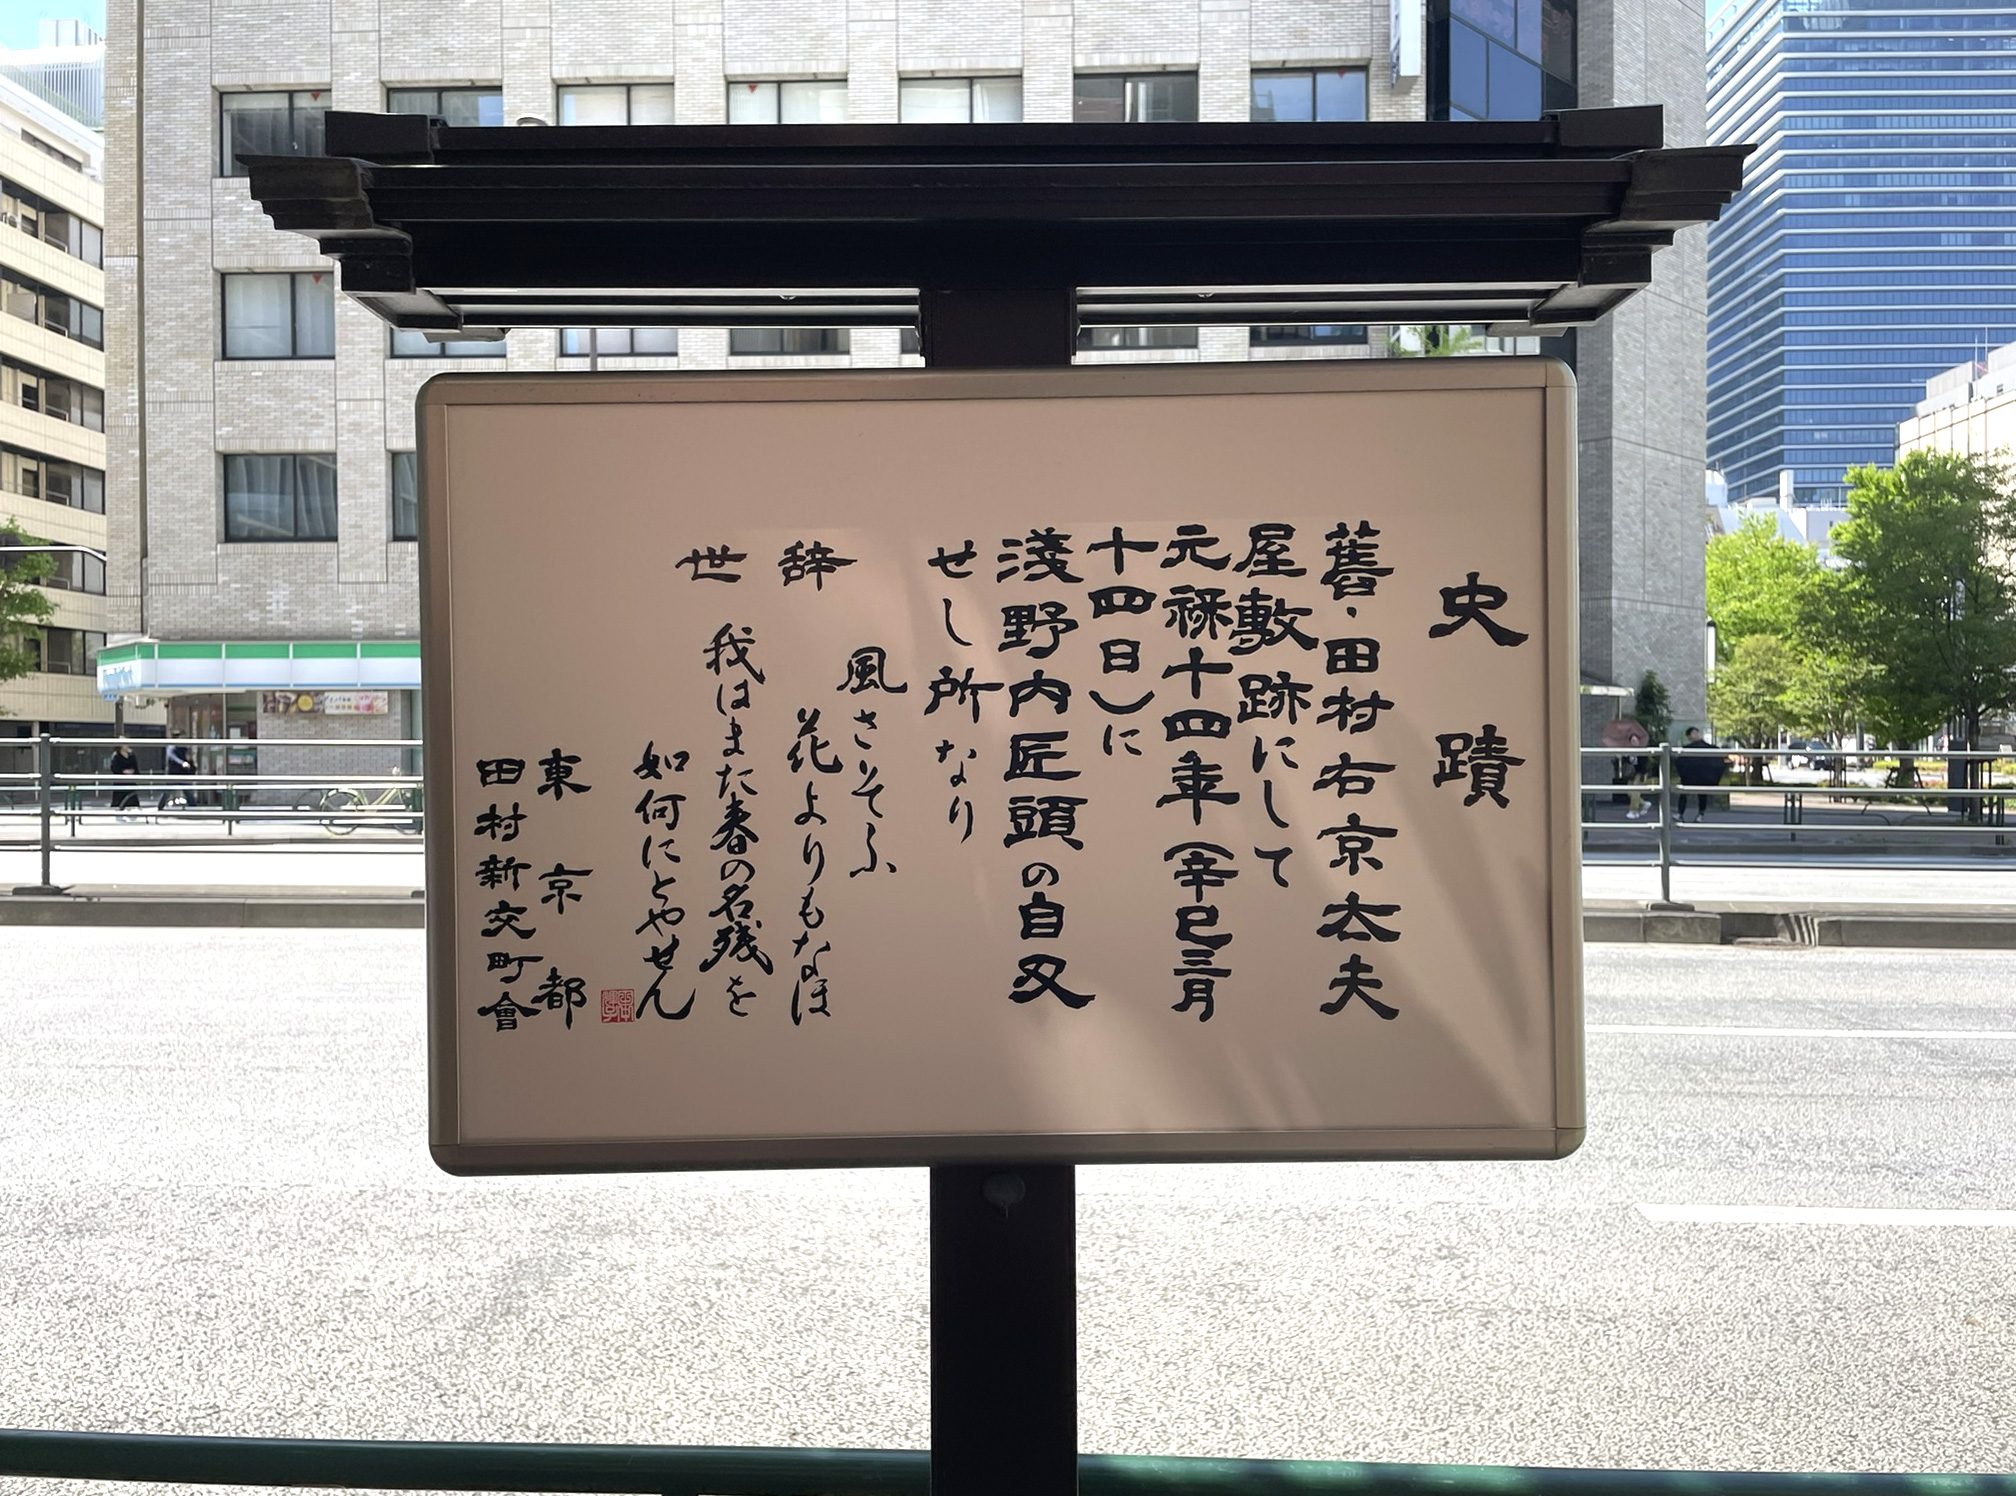 史蹟
舊・田村右京太夫
屋敷跡にして
元禄十四年(辛巳三月
十四日)に
淺野内匠頭の自刃
せし所なり
辞世
風さそふ
花よりもなほ
我はまた春の名残を
如何にとやせん
東京都
田村新交町會
FamilyMart